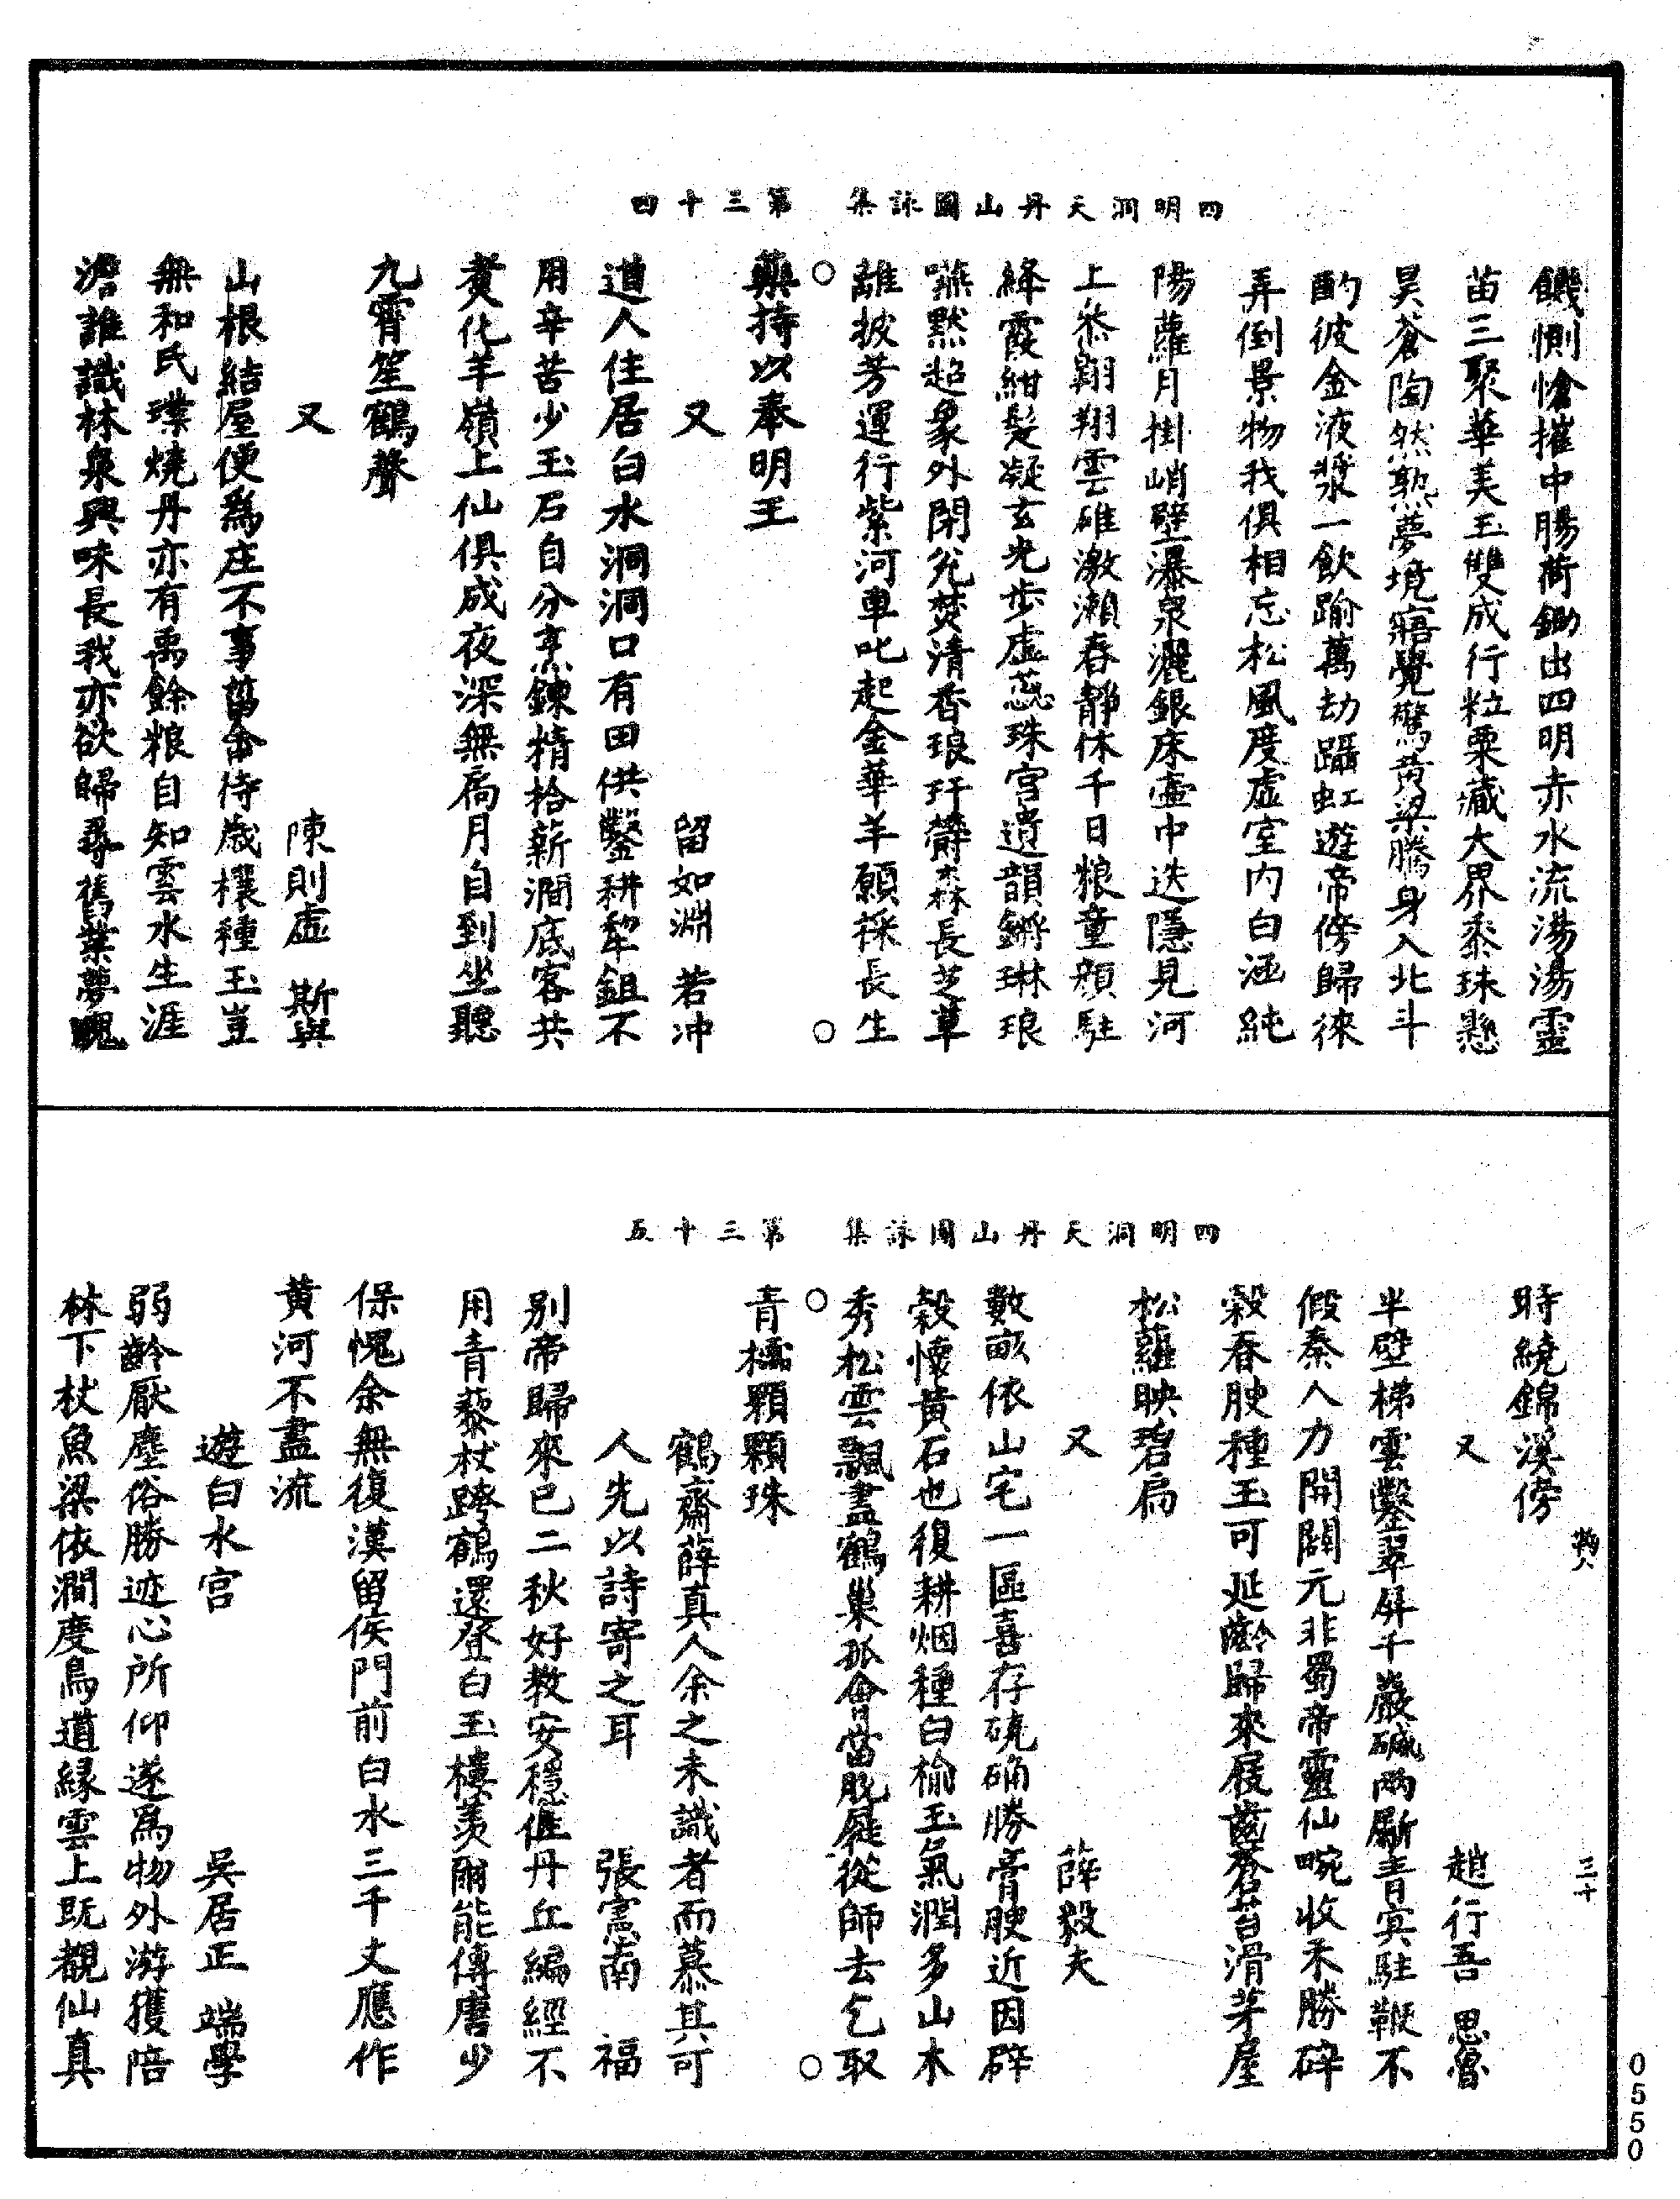 四明洞天丹山圖詠集　第三十四
饑惻愴摧中腸荷鋤出四明赤水流湯湯靈
苗三聚華美玉雙成行粒粟藏大界黍珠懸
昊蒼陶然熟夢境寤覺驚黃粱騰身入北斗
酌彼金液漿一飲踰萬劫躡虹遊帝傍歸徠
弄倒景物我俱相忘松風度虛室內白涵純
陽蘿月掛峭壁瀑泉灑銀床壺中迭隱見河
上恣翱翔雲碓激瀨舂靜休千日粮童顏駐
絳霞紺髮凝玄光步虛蕊珠宮遺韻鏘琳琅
嚥默超象外閉兊焚清香琅玕欝森長芝草
離披芳運行紫河車叱起金華羊願採長生
藥持以奉明王
又　留如淵　若冲
道人住居白水洞洞口有田供鑿耕犁鉏不
用辛苦少玉石自分烹鍊精拾薪澗底客共
煑化羊嶺上仙俱成夜深無扃月自到坐聽
九霄笙鶴聲
又　陳則虛　斯與
山根結屋便爲庄不事菑畬待歲穰種玉豈
無和氏璞燒丹亦有禹餘粮自知雲水生涯
澹誰識林泉興味長我亦欲歸尋舊業夢魂
四明洞天丹山圖詠集　第三十五
時繞錦溪傍
又　趙行吾　思魯
半壁梯雲鑿翠屏千巖碱兩斸青寘駐鞭不
假秦人力開闢元非蜀帝靈仙畹收禾勝碎
穀舂腴種玉可延齡歸來屐齒蒼苔滑茅屋
松蘿映碧扃
又　薛毅夫
數畝依山宅一區喜存磽确勝膏腴近因辟
穀懷黃石也復耕烟種白榆玉氣潤多山木
秀松雲飄盡鶴巢孤會當脫屣從師去乞取
青檽顆顆珠
鶴齋薛真人余之未識者而慕其可
人先以詩寄之耳　張憲南　福
別帝歸來已二秋好教安穩僱丹丘編經不
用青藜杖跨鶴還登白玉樓羨爾能傳唐少
保愧余無復漢留侯門前白水三千丈應作
黃河不盡流
遊白水宫　吳居正　端學
弱齡厭塵俗勝迹心所仰遂爲物外游獲陪
林下杖魚梁依澗度鳥道緣雲上旣覩仙真
三十
0550